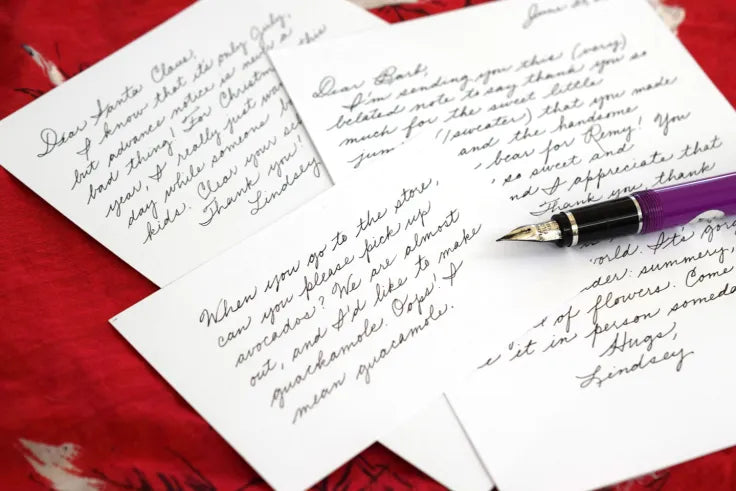 Dear Santa Claus,
I know that it's only July,
but advance notice is never a
bad thing! For Christmas this
year, I really just want a
day while someone
kids. Clear your
Thank you!
Lindsey
June
Dear Barb,
I'm sending you this (very)
belated note to say thank you so
much for the sweet little
(sweater) that you made
and the handsome
bear for Remy! You
so sweet and
and I appreciate that
Thank you, thank
When you go to the store,
can you please pick up
avocados? We are almost
out, and I'd like to make
guackamole. Oops! I
mean guacamole.
world. It's
summery,
of flowers. Come
it in person
Hugs,
Lindsey